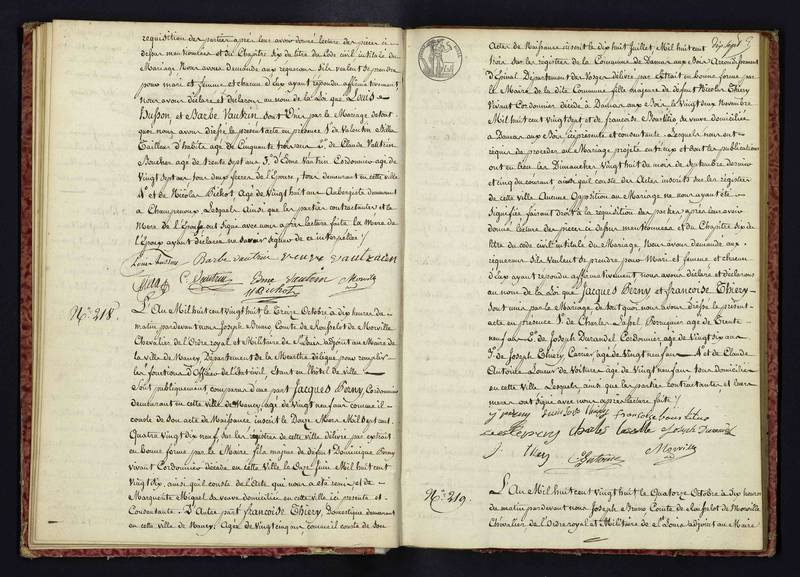 requisition des parties après leur avoir donné lecture des pièces ci
dessus mentionnées et du Chapitre six du titre du Code civil intitulé du
Mariage Nous avons demandé aux requérans s'ils veulent se prendre
pour mari et femme et chacun d'eux ayant répondu affirmativement
nous avons déclaré et déclarons au nom de la Loi que Louis
husson, et Barbe Vautrin sont Unis par le Mariage de tout
quoi nous avons dressé le présent acte en présence de Valentin
Tailleur d'habits agé de Cinquante trois ans 2°. de Claude Vautrin
Boucher agé de trente sept ans 3°. d'Esme Vautrin Cordonnier agé de
Vingt sept ans tous deux frères de l'Epouse, tous demeurant en cette ville
4°. et de Nicolas Pichot Agé de Vingt huit ans Aubergiste demeurant
à Champenoux, Lesquels Ainsi que les parties contractantes et la
Mère de l'Epouse ont Signé avec nous après lecture faite la Mère de
l'Epoux ayant déclaré ne savoir signer de ce interpellée /
Louis husson Barbe vautrin veuve vautrin
C. Vautrin Esme Vautrin Morville
N°. 218.
L'An Mil huit cent Vingt huit le Treize Octobre à dix heures du
matin pardevant nous Joseph Bruno Comte de Rousselot de Morville
Chevalier de l'Ordre royal et Militaire de St. Louis adjoint au Maire de
la Ville de Nancy, Département de la Meurthe délégué pour remplir
les fonctions d'Officier de l'état civil, Etant en l'hôtel de Ville
Sont publiquement comparus d'une part Jacques Berny Cordonnier
demeurant en cette ville de Nancy, agé de Vingt neuf ans comme il
conste de son acte de Naissance inscrit le Douze Mars Mil Sept cent
Quatre Vingt dix neuf, sur les registres de cette ville délivré par extrait
en bonne forme par le Maire fils majeur de défunt Dominique Berny
Vivant Cordonnier décédé en cette Ville le Onze Juin Mil huit cent
Vingt six, ainsi qu'il conste de l'Acte qui nous a été remis, et de
Marguerite Miquel sa veuve domiciliée en cette ville ici présente et
Consentante. D'Autre part françoise Thiery, Domestique demeurant
en cette ville de Nancy. Agée de Vingt cinq ans, comme il conste de son
Dix Sept
Acte de Naissance inscrit le dix huit Juillet, Mil huit cent
trois sur les registres de la Commune de Damas aux Bois Arrondissement
d'Epinal Département des Vosges délivré par Extrait en bonne forme par
le Maire de la dite Commune fille majeure de défunt Nicolas Thiery
Vivant Cordonnier décédé à Damas aux Bois le Vingt deux Novembre
Mil huit cent Vingt sept et de françoise sa veuve domiciliée
à Damas aux Bois ici présente et consentante. Lesquels nous ont
requis de procéder au Mariage projeté entr'eux et dont les publications
ont eu lieu les Dimanches Vingt huit du mois de Septembre dernier
et cinq du courant ainsi qu'il conste des Actes inscrits sur les registres
de cette ville Aucune Opposition au Mariage ne nous ayant été
Signifiée faisant droit à la requisition des parties après leur avoir
donné lecture des pièces ci dessus mentionnées et du Chapitre six du
titre du code civil intitulé du Mariage, Nous avons demandé aux
requérans s'ils veulent se prendre pour Mari et femme et chacun
d'eux ayant répondu affirmativement nous avons déclaré et déclarons
au nom de la Loi que Jacques Berny et françoise Thiery
sont unis par le Mariage de tout quoi nous avons dressé le présent
acte en présence 1°. de Charles Perruquier agé de Trente
neuf ans 2°. de Joseph Durandel Cordonnier agé de Vingt six ans
3°. de Joseph Thiery Carrier agé de Vingt neuf ans 4°. et de Claude
Antoine Loueur de Voitures agé de Vingt neuf ans tous domiciliés
en cette ville Lesquels, ainsi que les parties contractantes, et leurs
mères ont signé avec nous après lecture faite /
J. Berny
Charles Joseph Durandel
J. Thiery C Antoine Morville
N°. 219.
L'An Mil huit cent Vingt huit le Quatorze Octobre à dix heures
du matin pardevant nous Joseph Bruno Comte de Rousselot de Morville
Chevalier de l'Ordre royal et Militaire de St. Louis adjoint au Maire